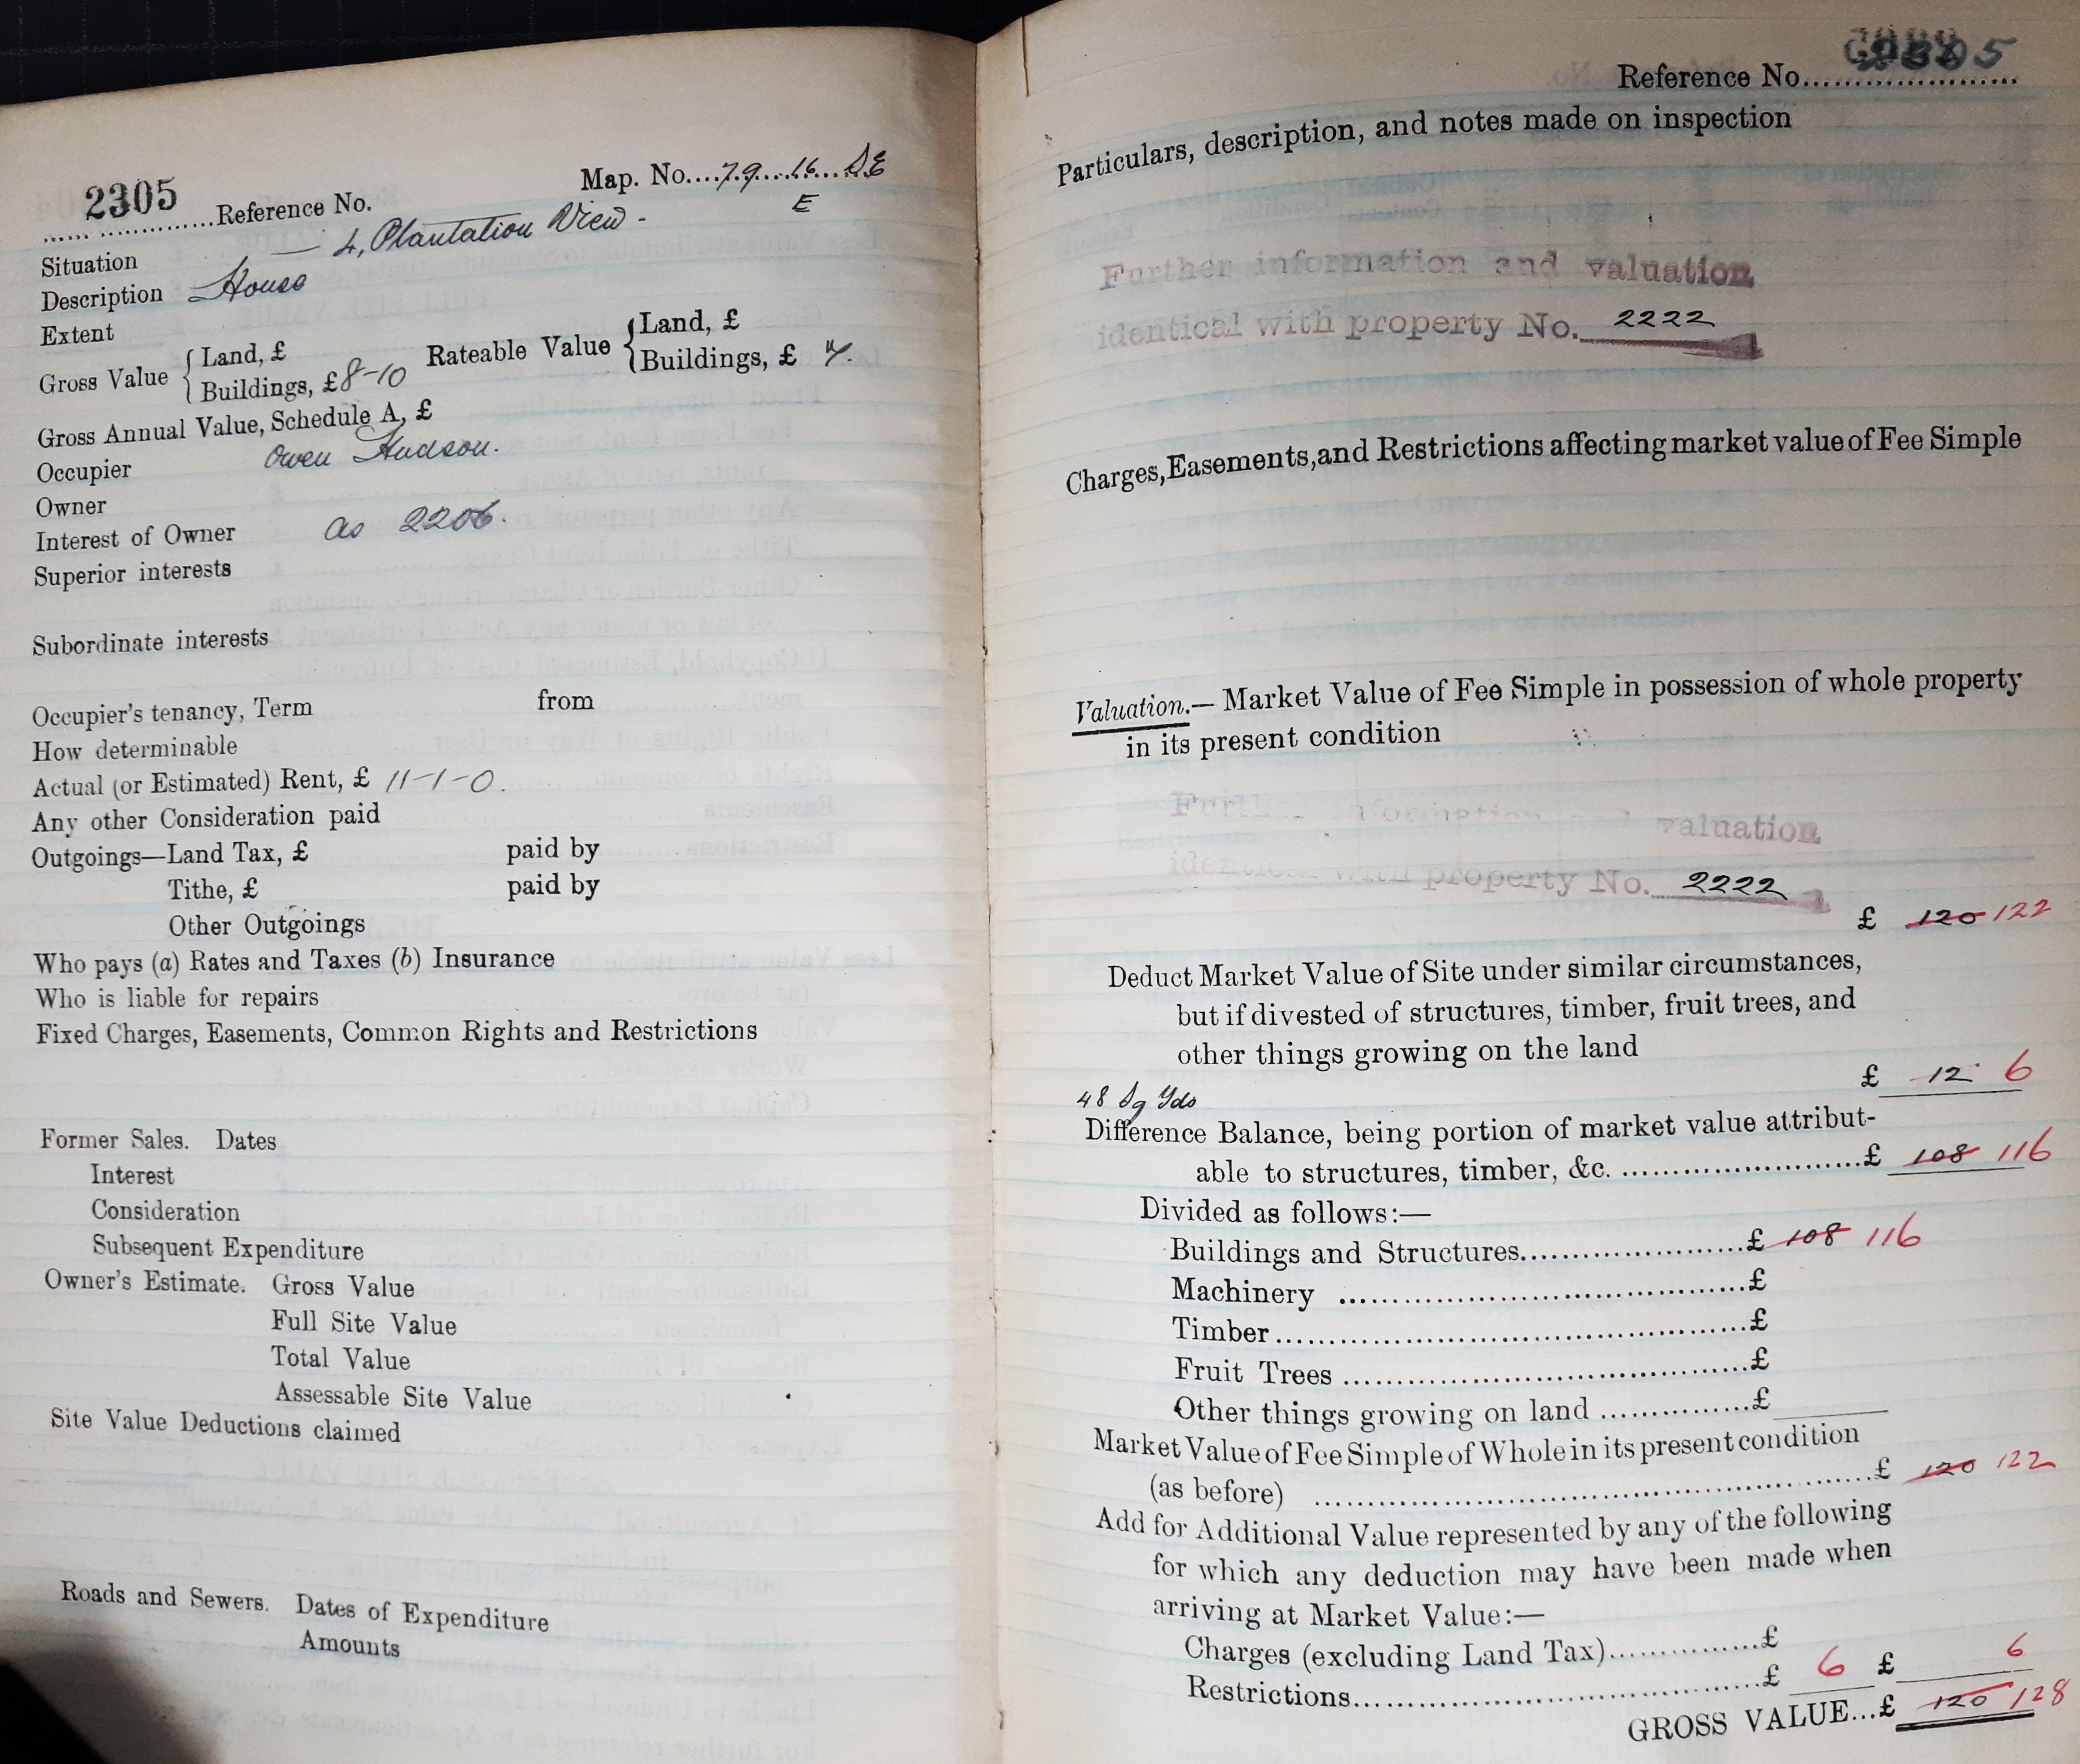 Map. No....79...16...S.E
E
2305
......Reference No.
Situation — 4, Plantation View -
Description House
Extent
Gross Value { Land, £
Buildings, £ 8-10
Rateable Value { Land, £
Buildings, £
Gross Annual Value, Schedule A, £
Occupier Owen Hudson.
Owner
Interest of Owner as 2206.
Superior interests
Subordinate interests
Occupier's tenancy, Term from
How determinable
Actual (or Estimated) Rent, £ 11-1-0.
Any other Consideration paid
Outgoings—Land Tax, £ paid by
Tithe, £ paid by
Other Outgoings
Who pays (a) Rates and Taxes (b) Insurance
Who is liable for repairs
Fixed Charges, Easements, Common Rights and Restrictions
Former Sales. Dates
Interest
Consideration
Subsequent Expenditure
Owner's Estimate. Gross Value
Full Site Value
Total Value
Assessable Site Value
Site Value Deductions claimed
Roads and Sewers. Dates of Expenditure
Amounts
Reference No......
Particulars, description, and notes made on inspection
Further information and valuation
identical with property No. 2222
Charges, Easements, and Restrictions affecting market value of Fee Simple
Valuation.— Market Value of Fee Simple in possession of whole property
in its present condition
Further information and valuation
identical with property No. 2222
£ 120 122
Deduct Market Value of Site under similar circumstances,
but if divested of structures, timber, fruit trees, and
other things growing on the land
£ 12 6
48 Sq Yds
Difference Balance, being portion of market value attribut-
able to structures, timber, &c. ......£ 108 116
Divided as follows:—
Buildings and Structures......£ 108 116
Machinery ......£
Timber......£
Fruit Trees ......£
Other things growing on land ......£
Market Value of Fee Simple of Whole in its present condition
(as before) ......£ 120 122
Add for Additional Value represented by any of the following
for which any deduction may have been made when
arriving at Market Value:—
Charges (excluding Land Tax)......£
Restrictions......£ 6 £ 6
GROSS VALUE...£ 120 128